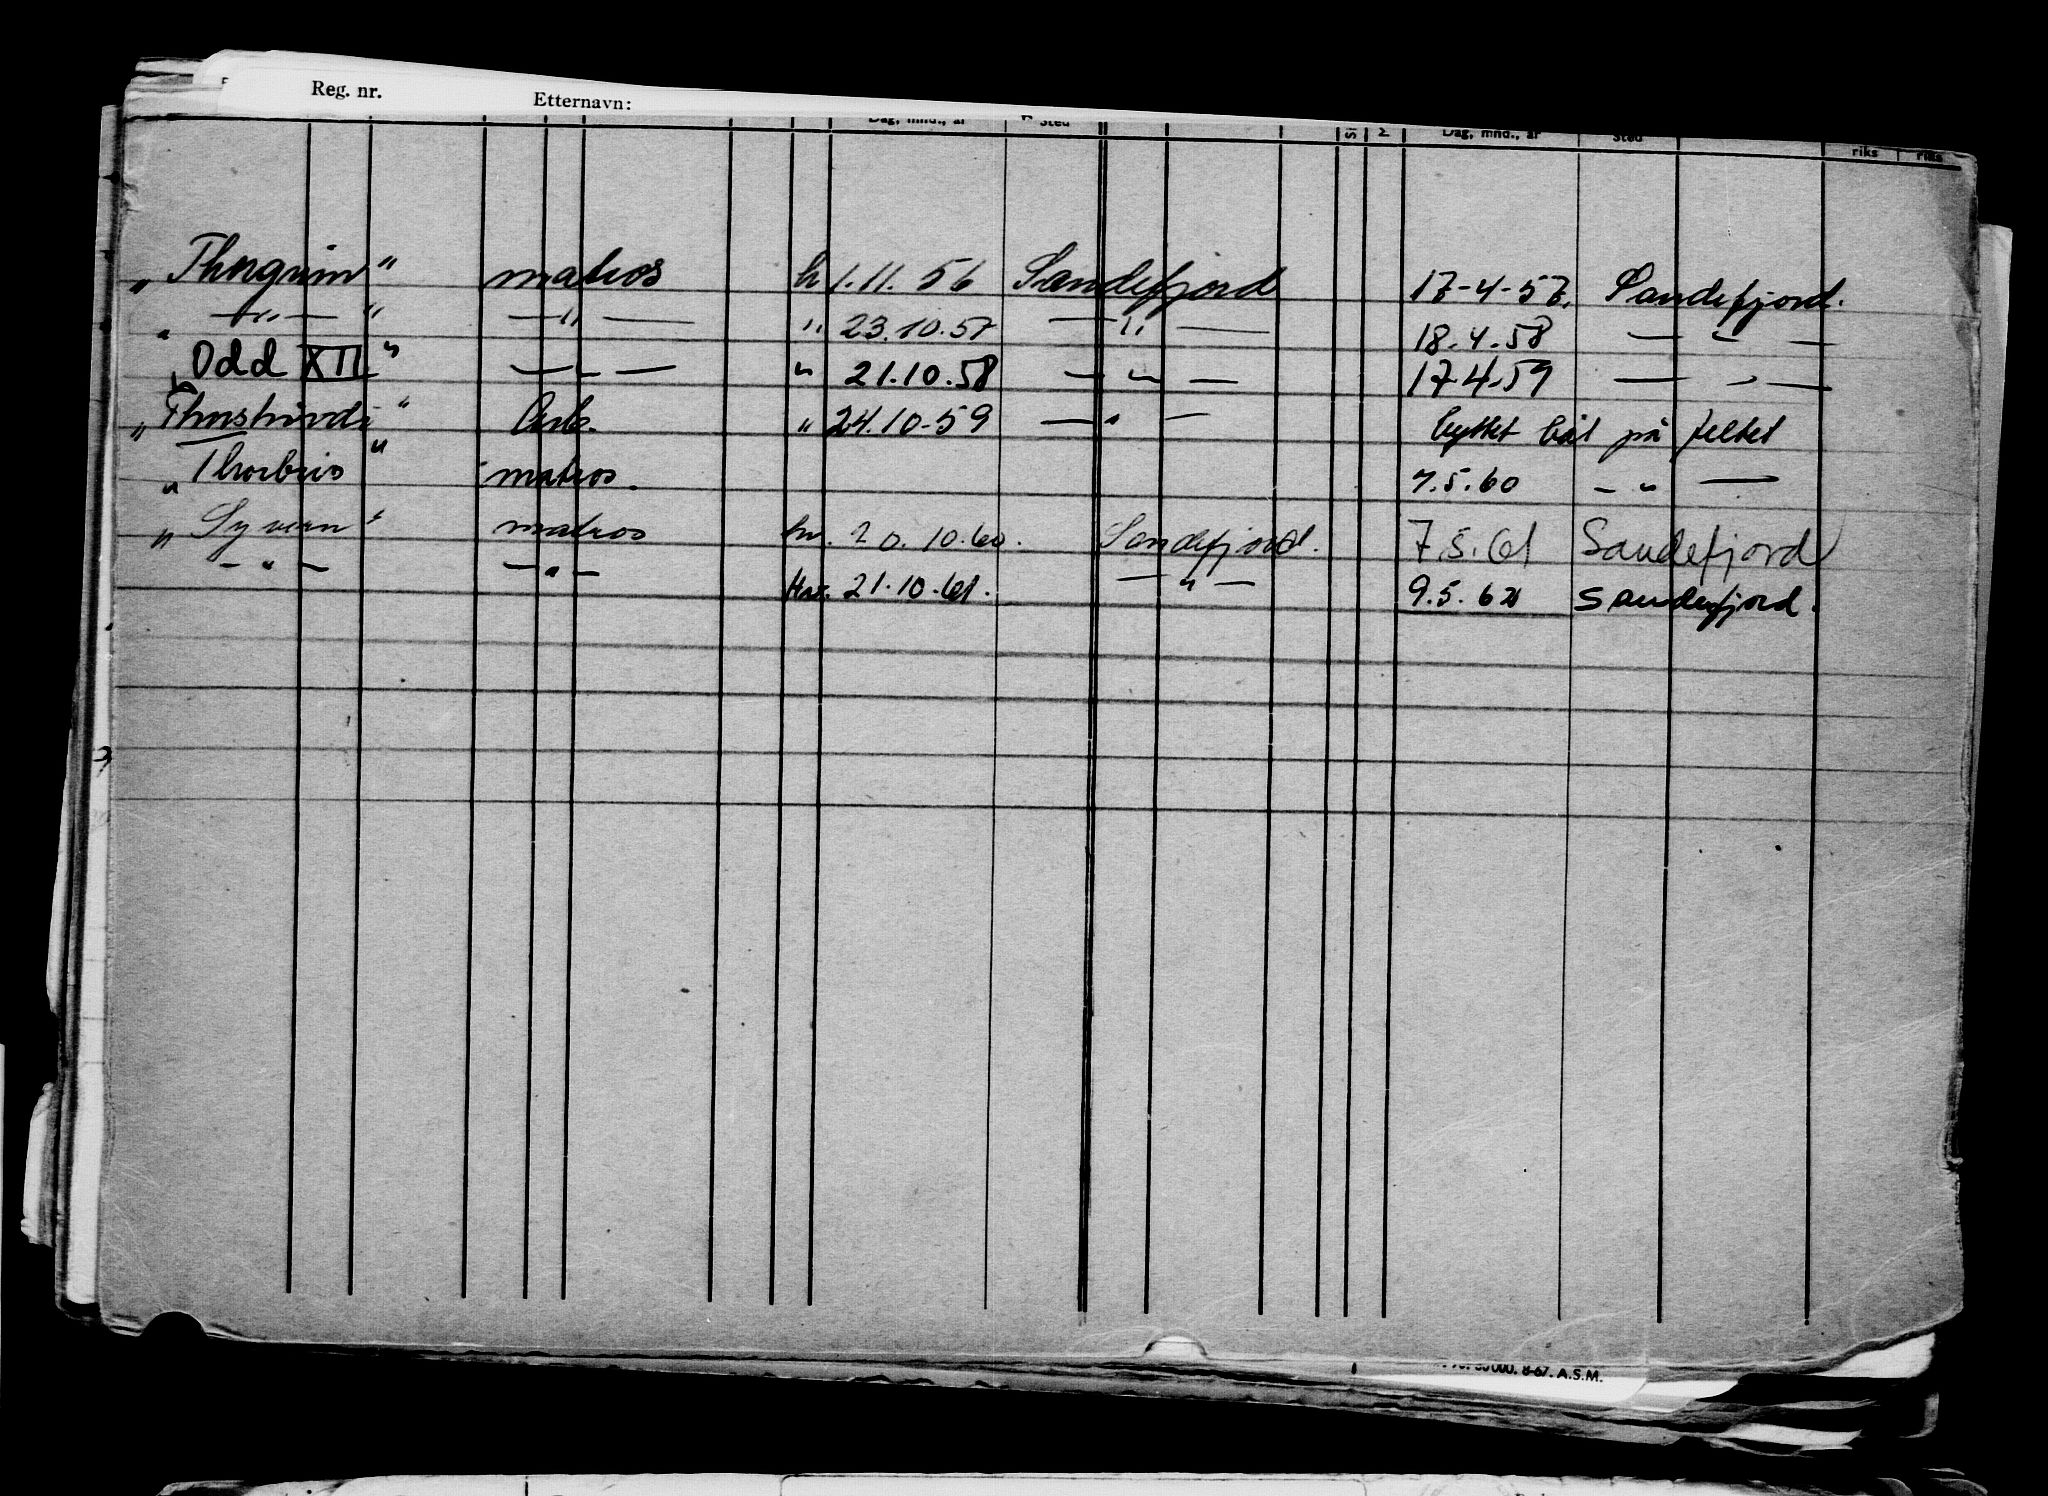 Reg. nr. Etternavn:
Dag, mnd., år Sted Dag, mnd., år Sted riks riks
„Thorgrim" matros h 1.11.56 Sandefjord 17-4-57. Sandefjord.
„ —"— " —"— " 23.10.57 —"— 18.4.58 —"—
„Odd XII" —"— " 21.10.58 —"— 17-4-59 —"—
„Thorshövdi" Arb. " 24.10-59 —"— byttet båt på feltet
„Thorbris" matros. 7.5.60 —"—
„Syvern" matros hv. 20.10.60. Sandefjord. 7.5.61 Sandefjord
—"— —"— Hv. 21.10.61. —"— 9.5.62 Sandefjord.
000. 8-67. A.S.M.